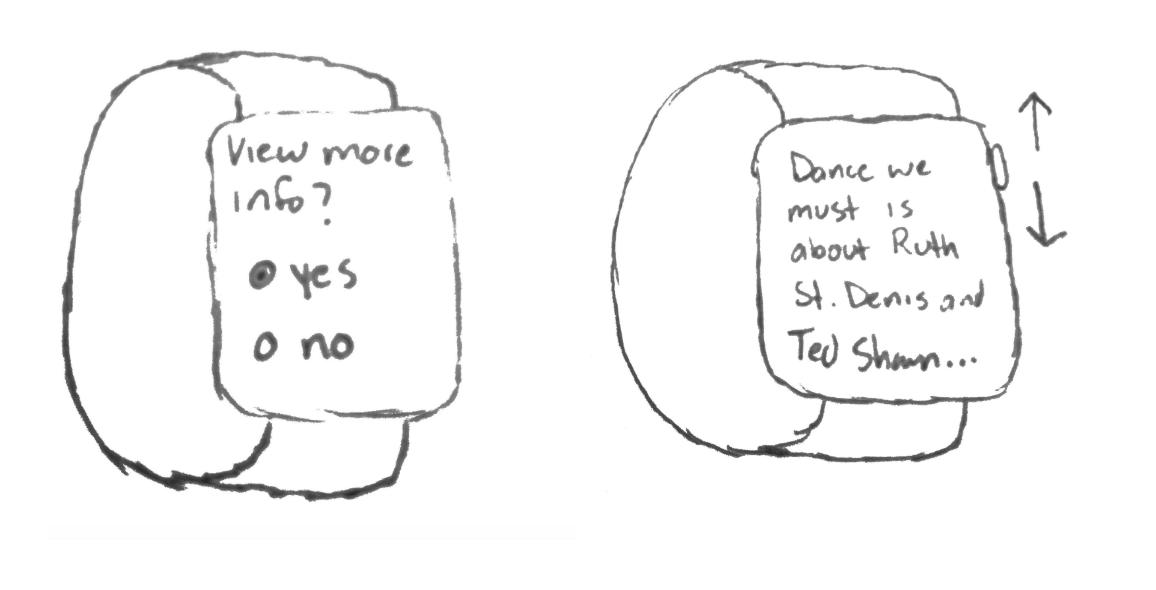 View more
info?
yes
no
Dance we
must is
about Ruth
St. Denis and
Ted Shawn...